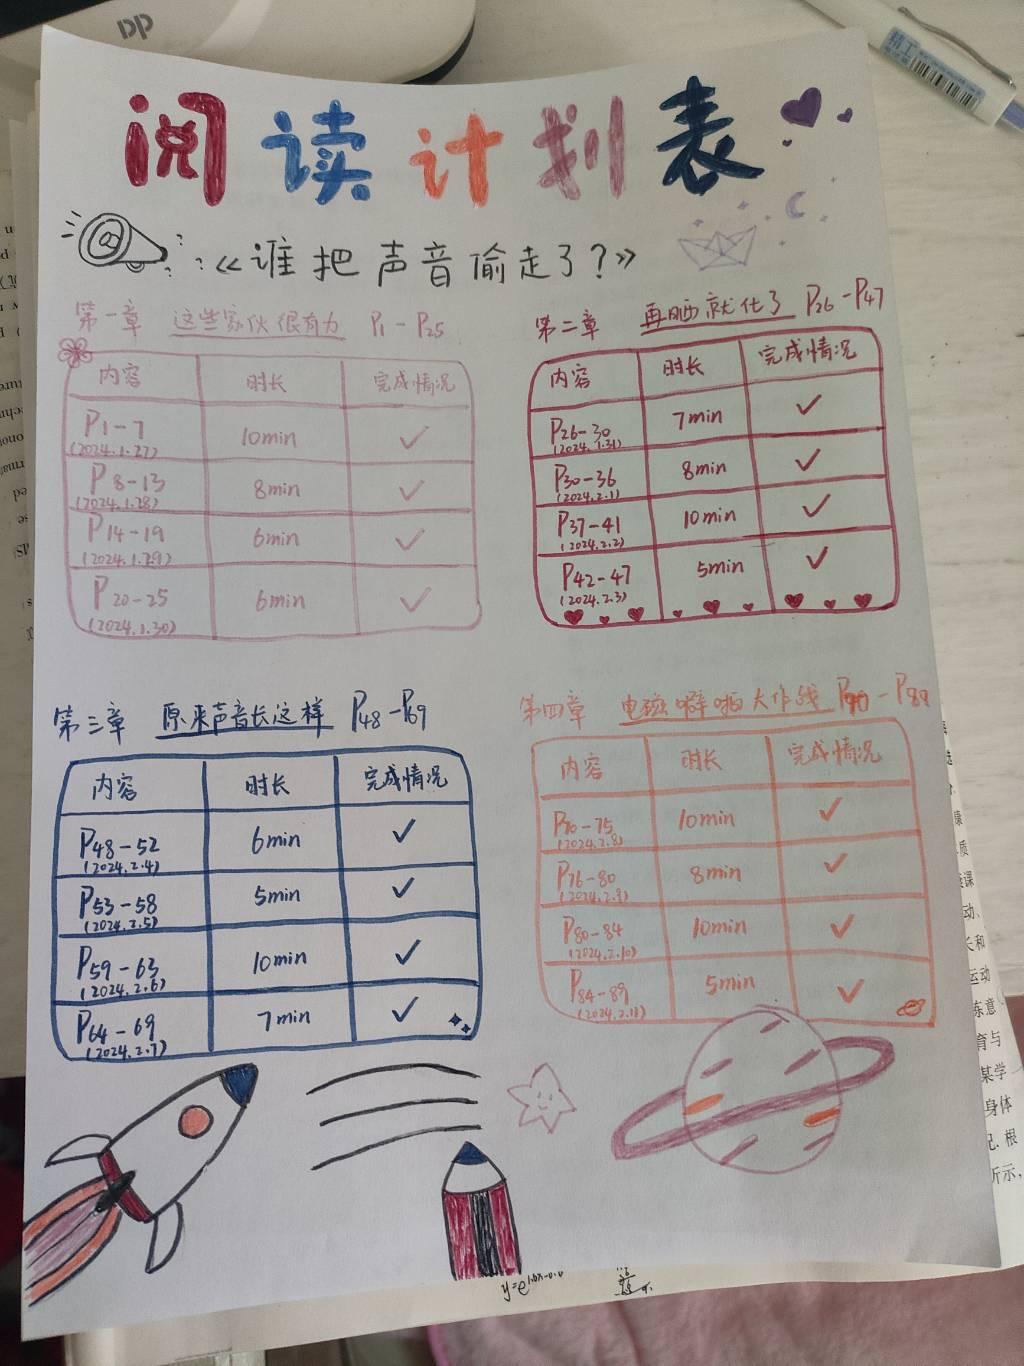 阅读计划表
《谁把声音偷走了?》
第一章 这些家伙很有力 P1-P25
内容 时长 完成情况
P1-7 10min ✓
(2024.1.27)
P8-13 8min ✓
(2024.1.28)
P14-19 6min ✓
(2024.1.29)
P20-25 6min ✓
(2024.1.30)
第二章 再晒就化了 P26-P47
内容 时长 完成情况
P26-30 7min ✓
(2024.1.31)
P30-36 8min ✓
(2024.2.1)
P37-41 10min ✓
(2024.2.2)
P42-47 5min ✓
(2024.2.3)
第三章 原来声音长这样 P48-P69
内容 时长 完成情况
P48-52 6min ✓
(2024.2.4)
P53-58 5min ✓
(2024.2.5)
P59-63 10min ✓
(2024.2.6)
P64-69 7min ✓
(2024.2.7)
第四章 电磁噼啪大作战 P70-P89
内容 时长 完成情况
P70-75 10min ✓
(2024.2.8)
P76-80 8min ✓
(2024.2.9)
P80-84 10min ✓
(2024.2.10)
P84-89 5min ✓
(2024.2.11)
精工